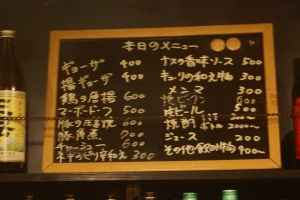 本日のメニュー
ギョーザ 400
揚ギョーザ 400
鶏の唐揚 600
マーボードーフ 500
豚の生姜焼 600
豚角煮 700
チャーシュー 600
ネギのピリ辛和え 300
ナスの香味ソース 500
キュリの和え物 300
メンマ 300
焼ビーフン 500
生ビール 500
焼酎 ボトル 2000〜
ジュース 300
その他飲み物 400〜